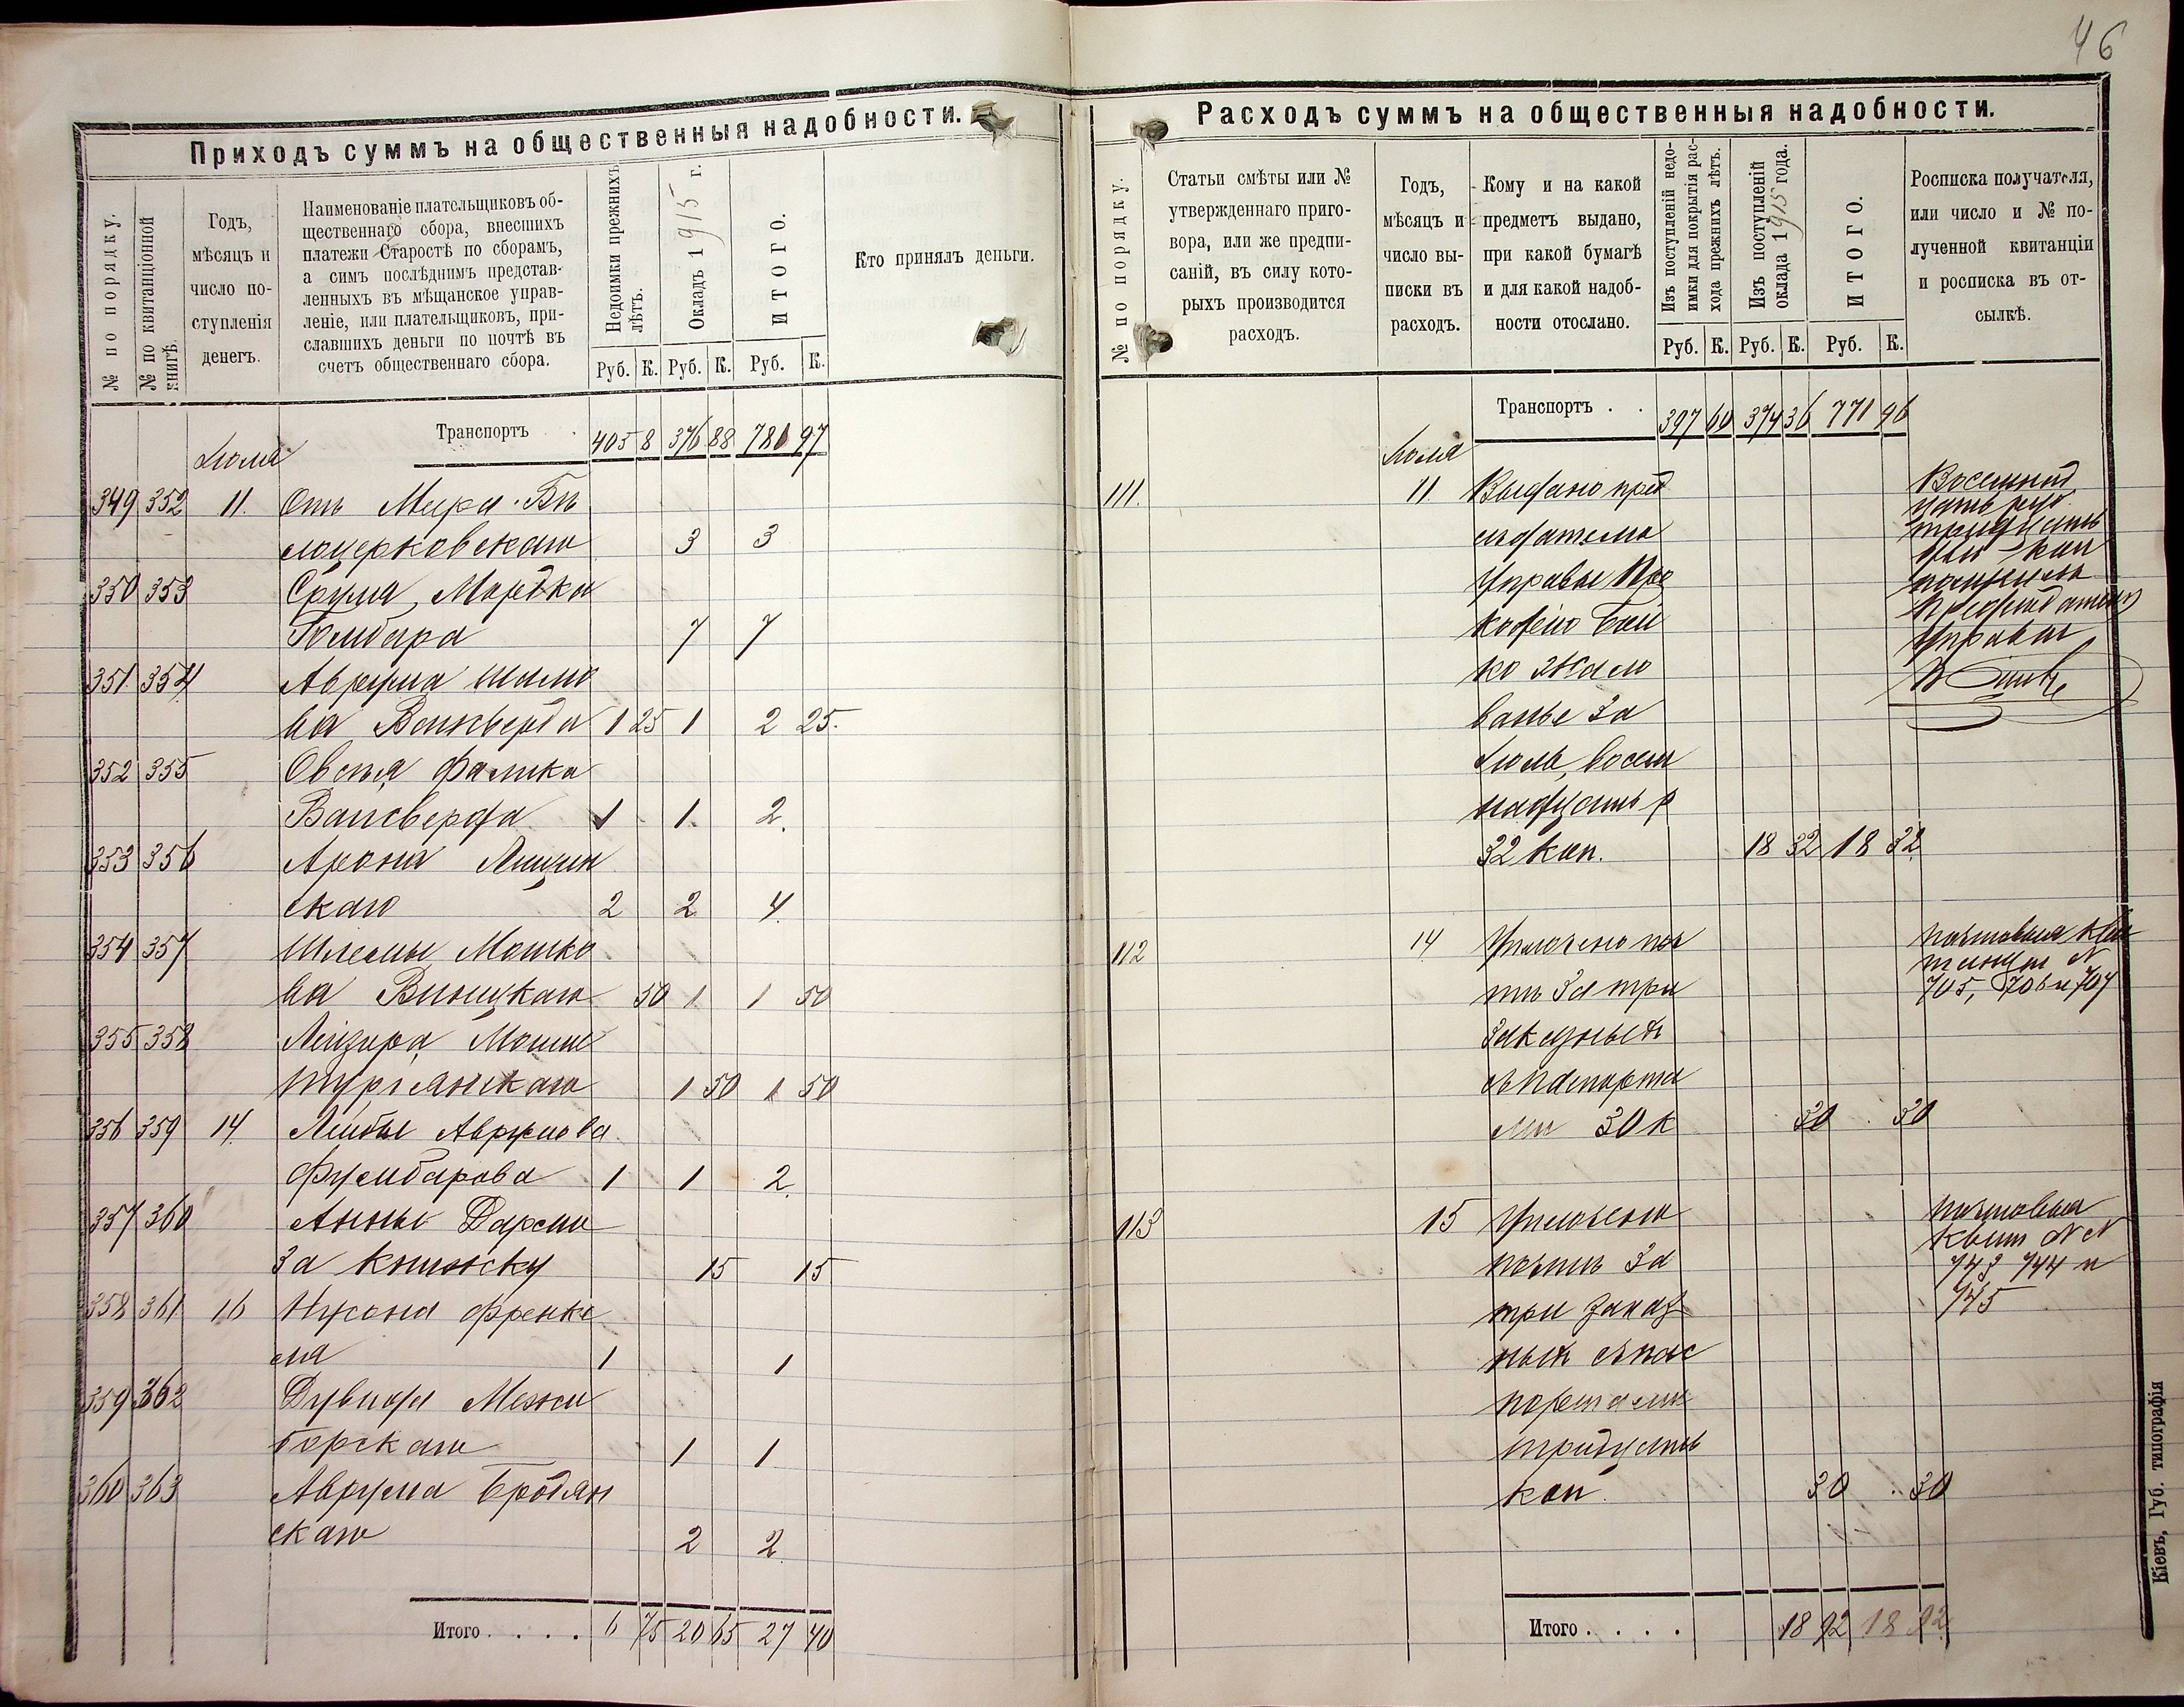 46
Приходъ суммъ на общественныя надобности.
№ по порядку.
№ по квитанціонной
книгѣ.
Годъ,
мѣсяцъ и
число по-
ступленія
денегъ.
Наименованіе плательщиковъ об-
щественнаго сбора, внесшихъ
платежи Старостѣ по сборамъ,
а симъ послѣднимъ представ-
ленныхъ въ мѣщанское управ-
леніе, или плательщиковъ, при-
славшихъ деньги по почтѣ въ
счетъ общественнаго сбора.
Недоимки прежнихъ
лѣтъ.
Окладъ 1915 г.
ИТОГО.
Кто принялъ деньги.
Руб. К. Руб. К. Руб. К.
Транспортъ 405 8 376 88 781 97
Іюля
349 352 11. Отъ Мира Бѣ
лоцерковскаго 3 3
350 353 Срула Мордка
Гольдара 7 7
351 354 Аврума Шмо
ва Вансверда 1 25 1 2 25.
352 355 Овсѣя Фалика
Вансверда 1 1. 2.
353 356 Арона Лищин
скаго 2 2 4.
354 357 Шлемы Мошко
ва Виницкаго 50 1 1 50
355 358 Лейзера Мошка
Турianскаго 1 50 1 50
356 359 14. Лейбы Аврумова
1 1 2.
357 360 Анны
за книжку 15 15
358 361 16 Нухона Френке
ля 1 1
359 362 Дувида Межи
горскаго 1 1
360 363 Аврума Бродян
скаго 2 2.
Итого . . . . 6 75 20 65 27 40
Расходъ суммъ на общественныя надобности.
№ по порядку.
Статьи смѣты или №
утвержденнаго приго-
вора, или же предпи-
саній, въ силу кото-
рыхъ производится
расходъ.
Годъ,
мѣсяцъ и
число вы-
писки въ
расходъ.
Кому и на какой
предметъ выдано,
при какой бумагѣ
и для какой надоб-
ности отослано.
Изъ поступленій недо-
имки для покрытія рас-
хода прежнихъ лѣтъ.
Изъ поступленій
оклада 1915 года.
ИТОГО.
Росписка получателя,
или число и № по-
лученной квитанціи
и росписка въ от-
сылкѣ.
Руб. К. Руб. К. Руб. К.
Транспортъ . . 397 60 374 36 771 96
Іюля
111. 11. Выдано пред
сѣдателю
Управы Про
кофію Бой
ко жало
ванье за
Іюль, восем
надцать р
32 коп. 18 32 18 32
Восемнад
цать руб.
тридцать
две коп
получилъ
Предсѣдатель
Управы
112 14 Уплочено поч
тѣ за три
заказныхъ
съ паспорта
ми 30 к 30 30
почтовыя кви
танціи №
705, 706 и 707
113 15 Уплочено
почтѣ за
три заказ
ныхъ съ пас
портами
тридцать
коп. 30 30
почтовыя
квит №№
743 744 и
745
Итого . . . . 18 92 18 92
Кіевъ, Губ. типографія